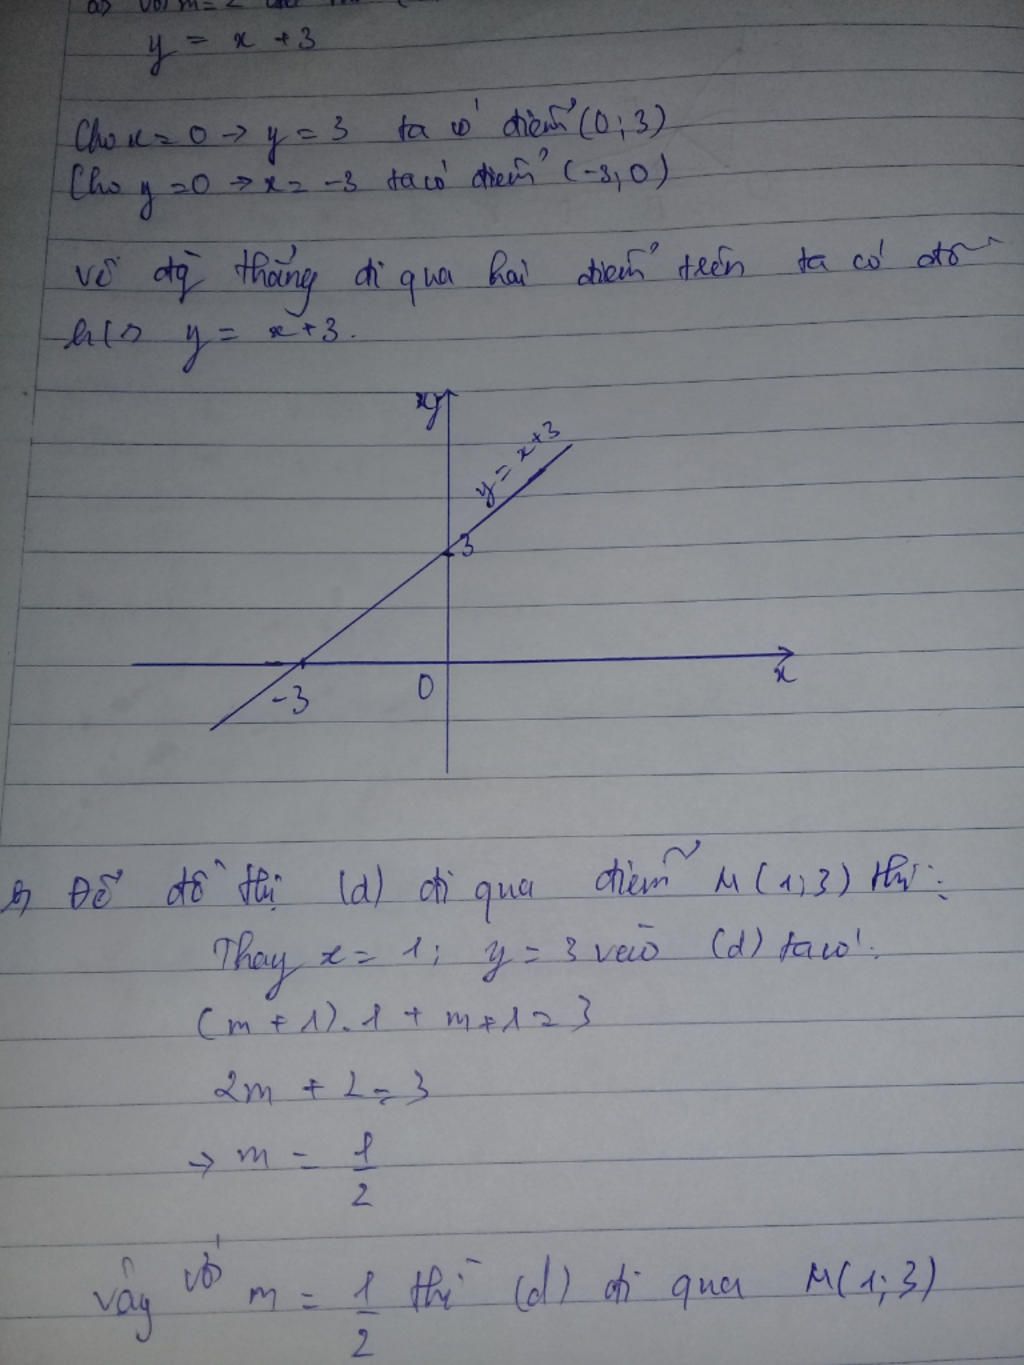 a) với m = 2
y = x + 3
Cho x = 0 → y = 3 ta có điểm (0; 3)
Cho y = 0 → x = -3 ta có điểm (-3; 0)
vẽ đg thẳng đi qua hai điểm trên ta có đồ
h(s) y = x + 3.
y
y = x + 3
3
x
-3
0
b) Để đồ thị (d) đi qua điểm M(1; 3) thì:
Thay x = 1; y = 3 vào (d) ta có:
(m + 1).1 + m + 1 = 3
2m + 2 = 3
→ m = 1/2
vậy với m = 1/2 thì (d) đi qua M(1; 3)